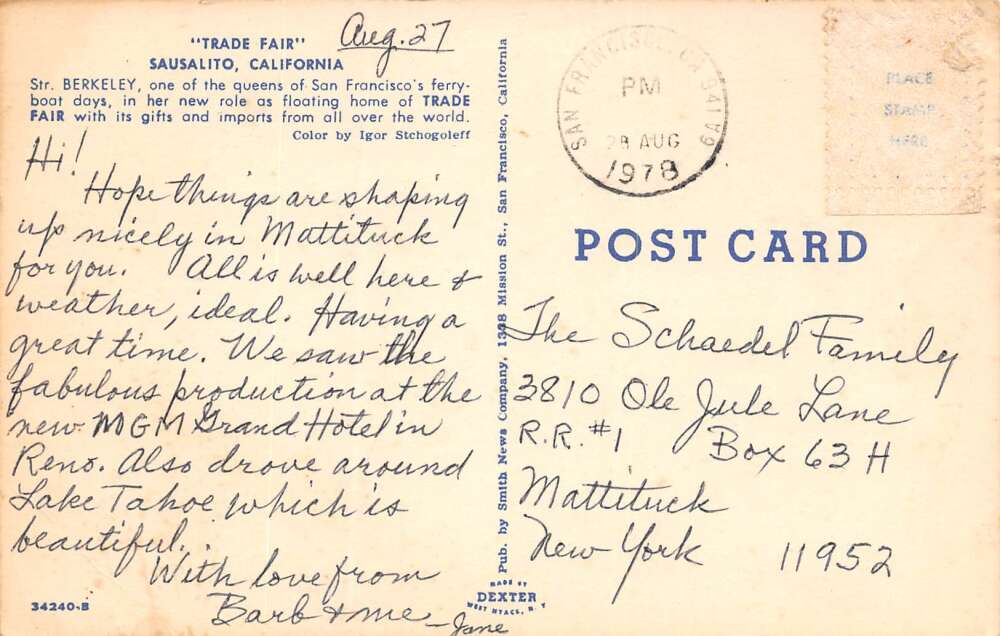 "TRADE FAIR"
SAUSALITO, CALIFORNIA
Aug. 27
Str. BERKELEY, one of the queens of San Francisco's ferry-
boat days, in her new role as floating home of TRADE
FAIR with its gifts and imports from all over the world.
Color by Igor Stchogoleff
Hi!
Hope things are shaping
up nicely in Mattituck
for you. All is well here &
weather, ideal. Having a
great time. We saw the
fabulous production at the
new MGM Grand Hotel in
Reno. Also drove around
Lake Tahoe which is
beautiful.
With love from
Barb & me
- Jane
34240-B
Pub. by Smith News Company, 1338 Mission St., San Francisco, California
MADE BY
DEXTER
WEST NYACK, N. Y.
SAN FRANCISCO CA 941
PM
28 AUG
1978
PLACE
STAMP
HERE
POST CARD
The Schaedel Family
3810 Ole Jule Lane
R.R. #1 Box 63 H
Mattituck
New York 11952